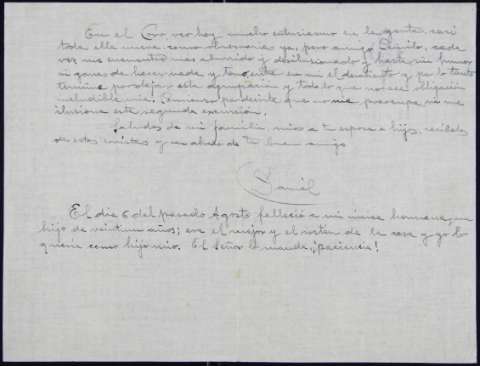 En el Coro veo hay mucho entusiasmo en la gente, casi
toda ella nueva como observaria ya, pero amigo Benito, cada
vez me encuentro más aburrido y desilusionado y hasta sin humor
ni ganas de hacer nada y
termine por dejar esta agrupación y todo lo que no sea obligación
ineludible mia. que no me preocupa ni me
ilusiona esta segunda excursión.
Saludos de mi familia, mios a tu esposa e hijos, recibelos
de estos y un abrazo de tu buen amigo
Daniel
El dia 6 del pasado Agosto falleció a mi única hermana, un
hijo de veintiun años; era el mejor y el sosten de la casa y yo lo
queria como hijo mio. El Señor lo manda, ¡paciencia!